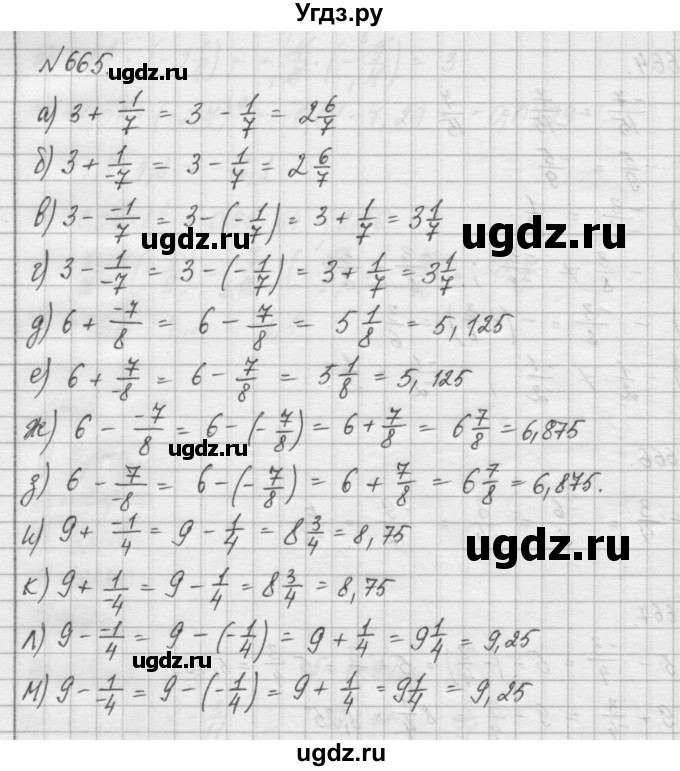 Угдз.ру
№665.
ugdz.ru
а) 3 + -1/7 = 3 - 1/7 = 2 6/7
б) 3 + 1/-7 = 3 - 1/7 = 2 6/7
в) 3 - -1/7 = 3 - (- 1/7) = 3 + 1/7 = 3 1/7
ugdz.ru
ugdz.ru
г) 3 - 1/-7 = 3 - (- 1/7) = 3 + 1/7 = 3 1/7.
д) 6 + -7/8 = 6 - 7/8 = 5 1/8 = 5,125
е) 6 + 7/-8 = 6 - 7/8 = 5 1/8 = 5,125
ж) 6 - -7/8 = 6 - (- 7/8) = 6 + 7/8 = 6 7/8 = 6,875
ugdz.ru
з) 6 - 7/-8 = 6 - (- 7/8) = 6 + 7/8 = 6 7/8 = 6,875.
и) 9 + -1/4 = 9 - 1/4 = 8 3/4 = 8,75
ugdz.ru
к) 9 + 1/-4 = 9 - 1/4 = 8 3/4 = 8,75
л) 9 - -1/4 = 9 - (- 1/4) = 9 + 1/4 = 9 1/4 = 9,25
ugdz.ru
м) 9 - 1/-4 = 9 - (- 1/4) = 9 + 1/4 = 9 1/4 = 9,25
ugdz.ru